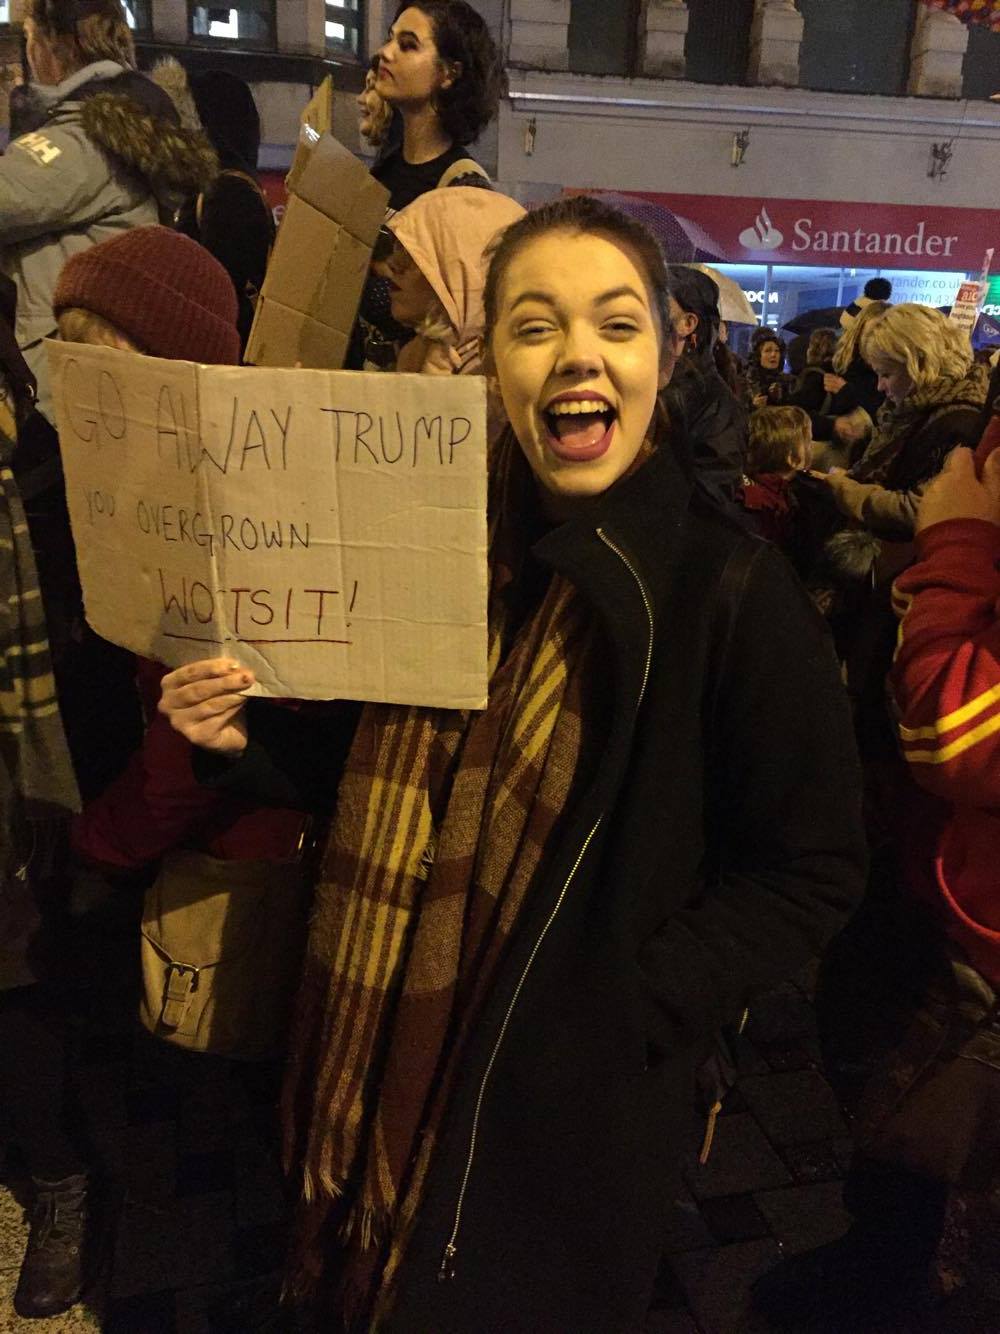 HH
Santander
GO AWAY TRUMP
YOU OVERGROWN
WOTSIT!